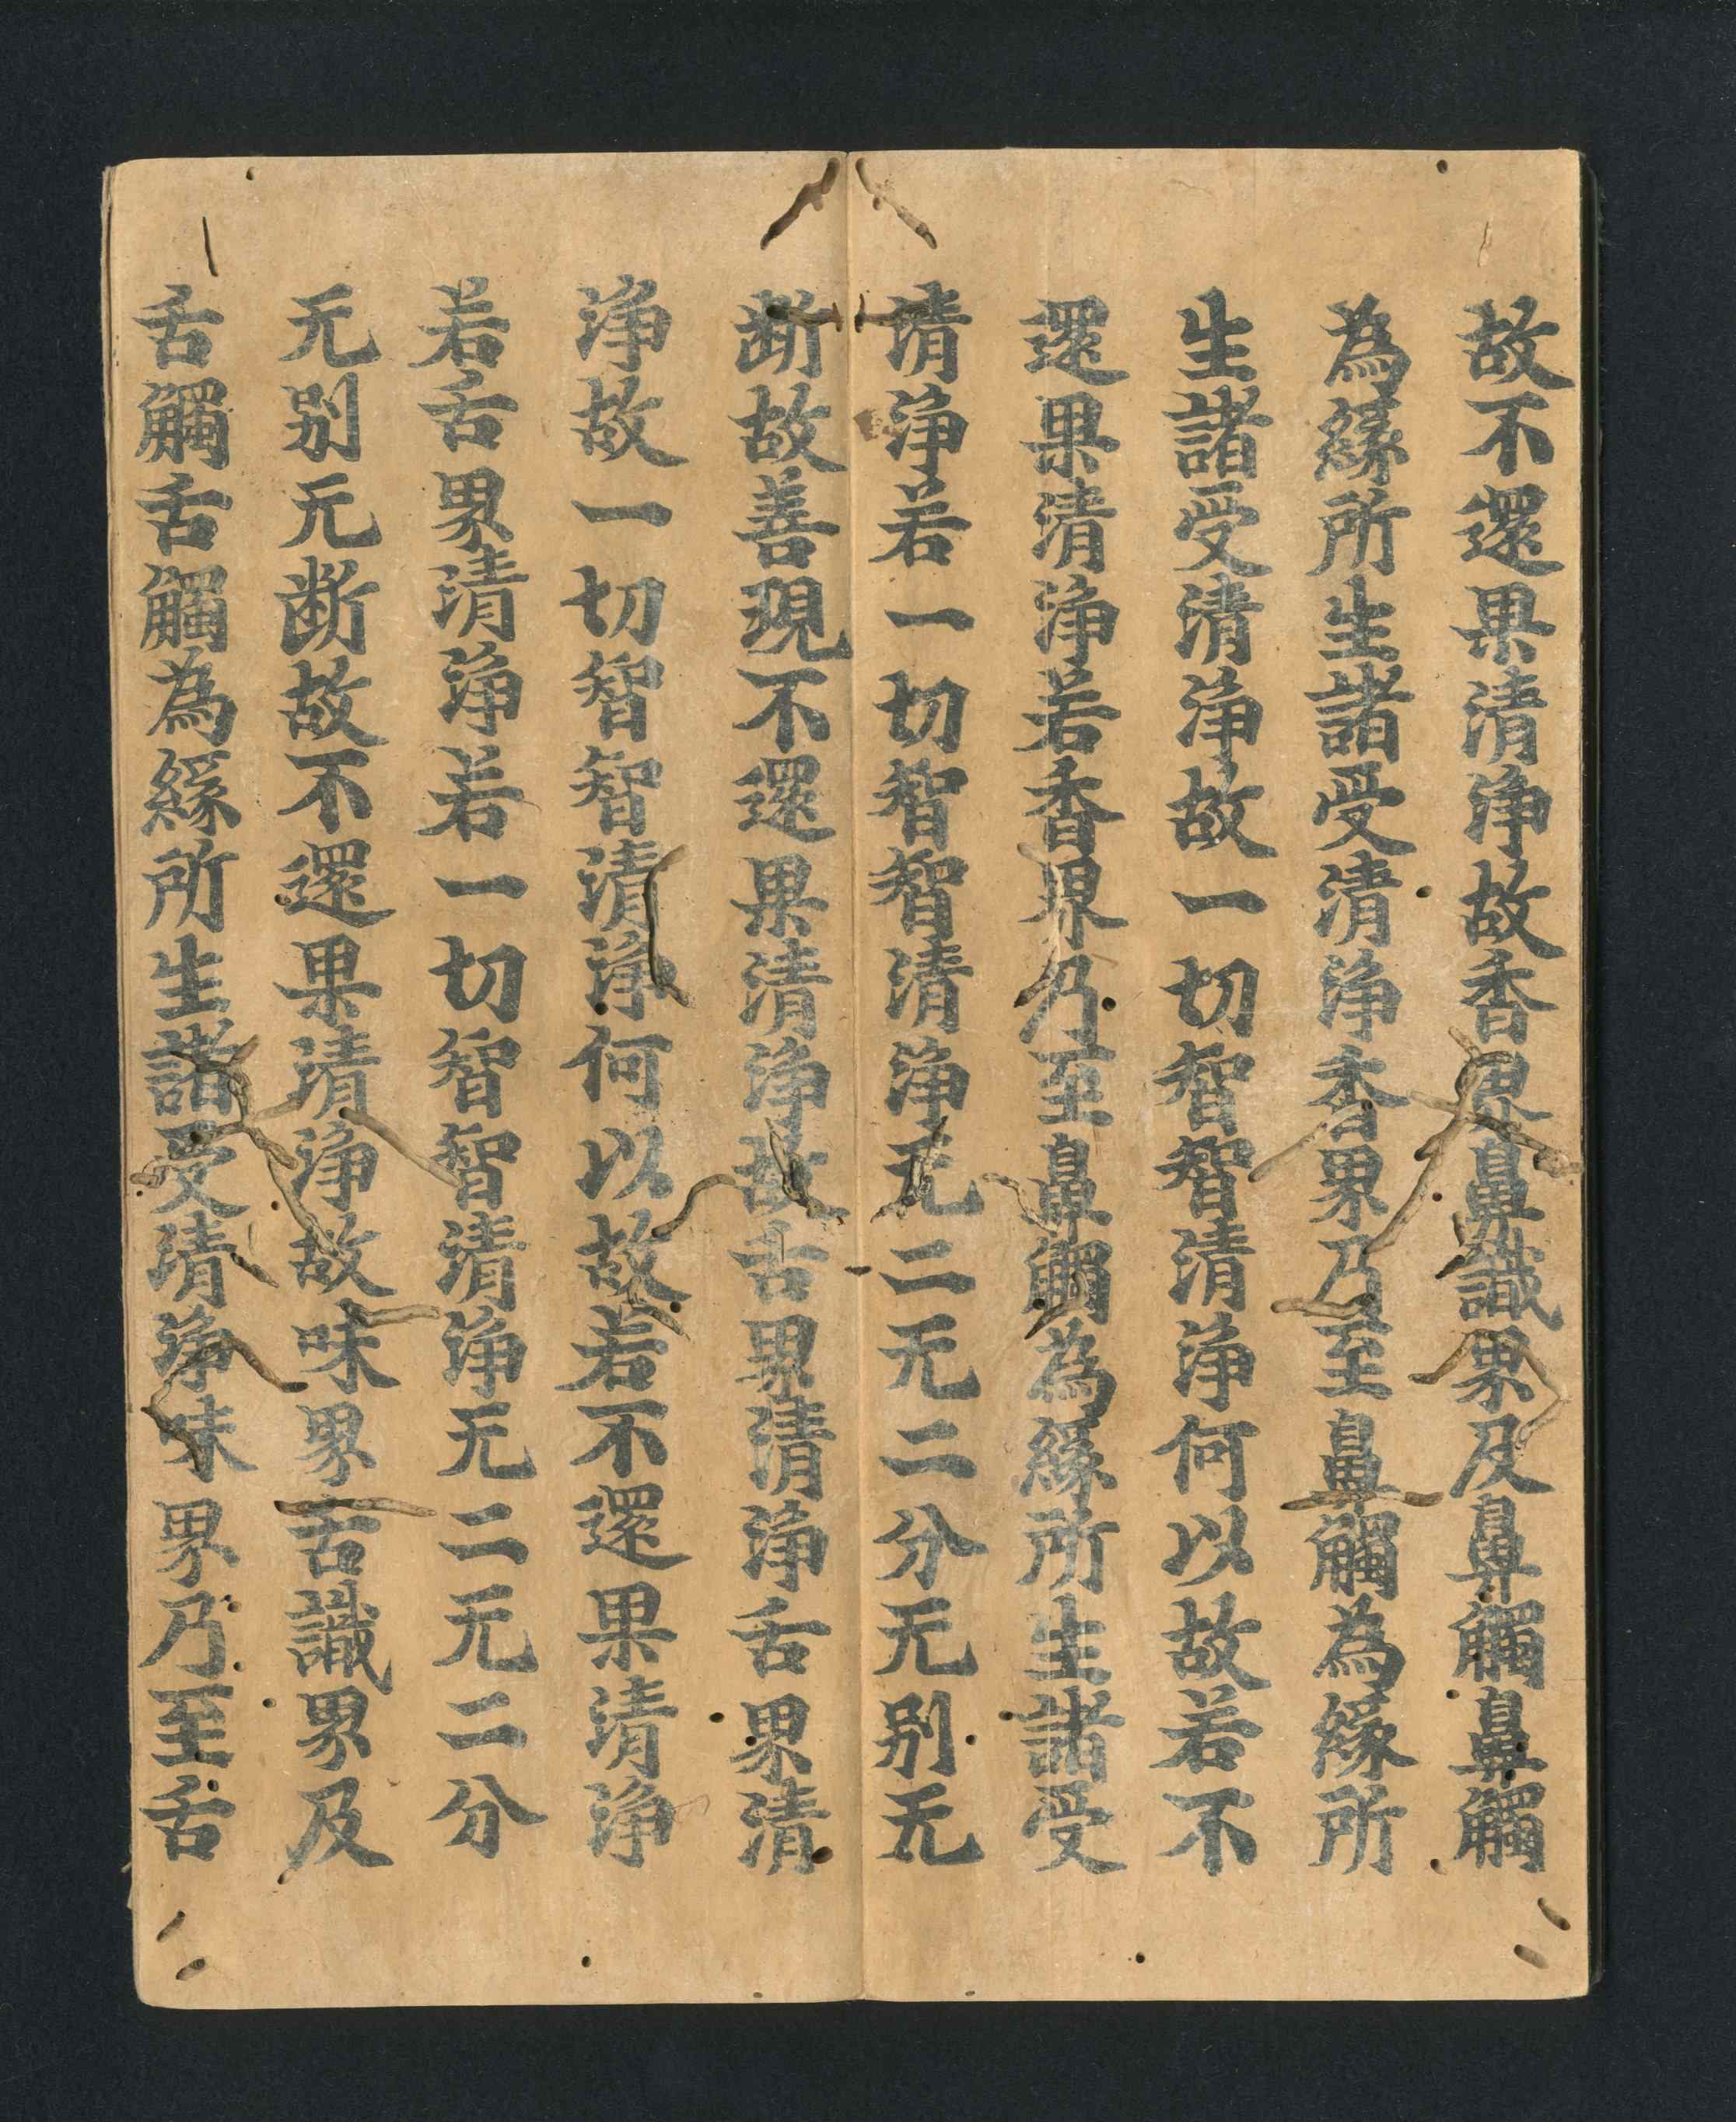 故不還果清淨故香界鼻識界及鼻觸鼻觸
為緣所生諸受清淨香界乃至鼻觸為緣所
生諸受清淨故一切智智清淨何以故若不
還果清淨若香界乃至鼻觸為緣所生諸受
清淨若一切智智清淨无二无二分无别无
断故善現不還果清淨故舌界清淨舌界清
淨故一切智智清淨何以故若不還果清淨
若舌界清淨若一切智智清淨无二无二分
无别无断故不還果清淨故味界舌識界及
舌觸舌觸為緣所生諸受清淨味界乃至舌